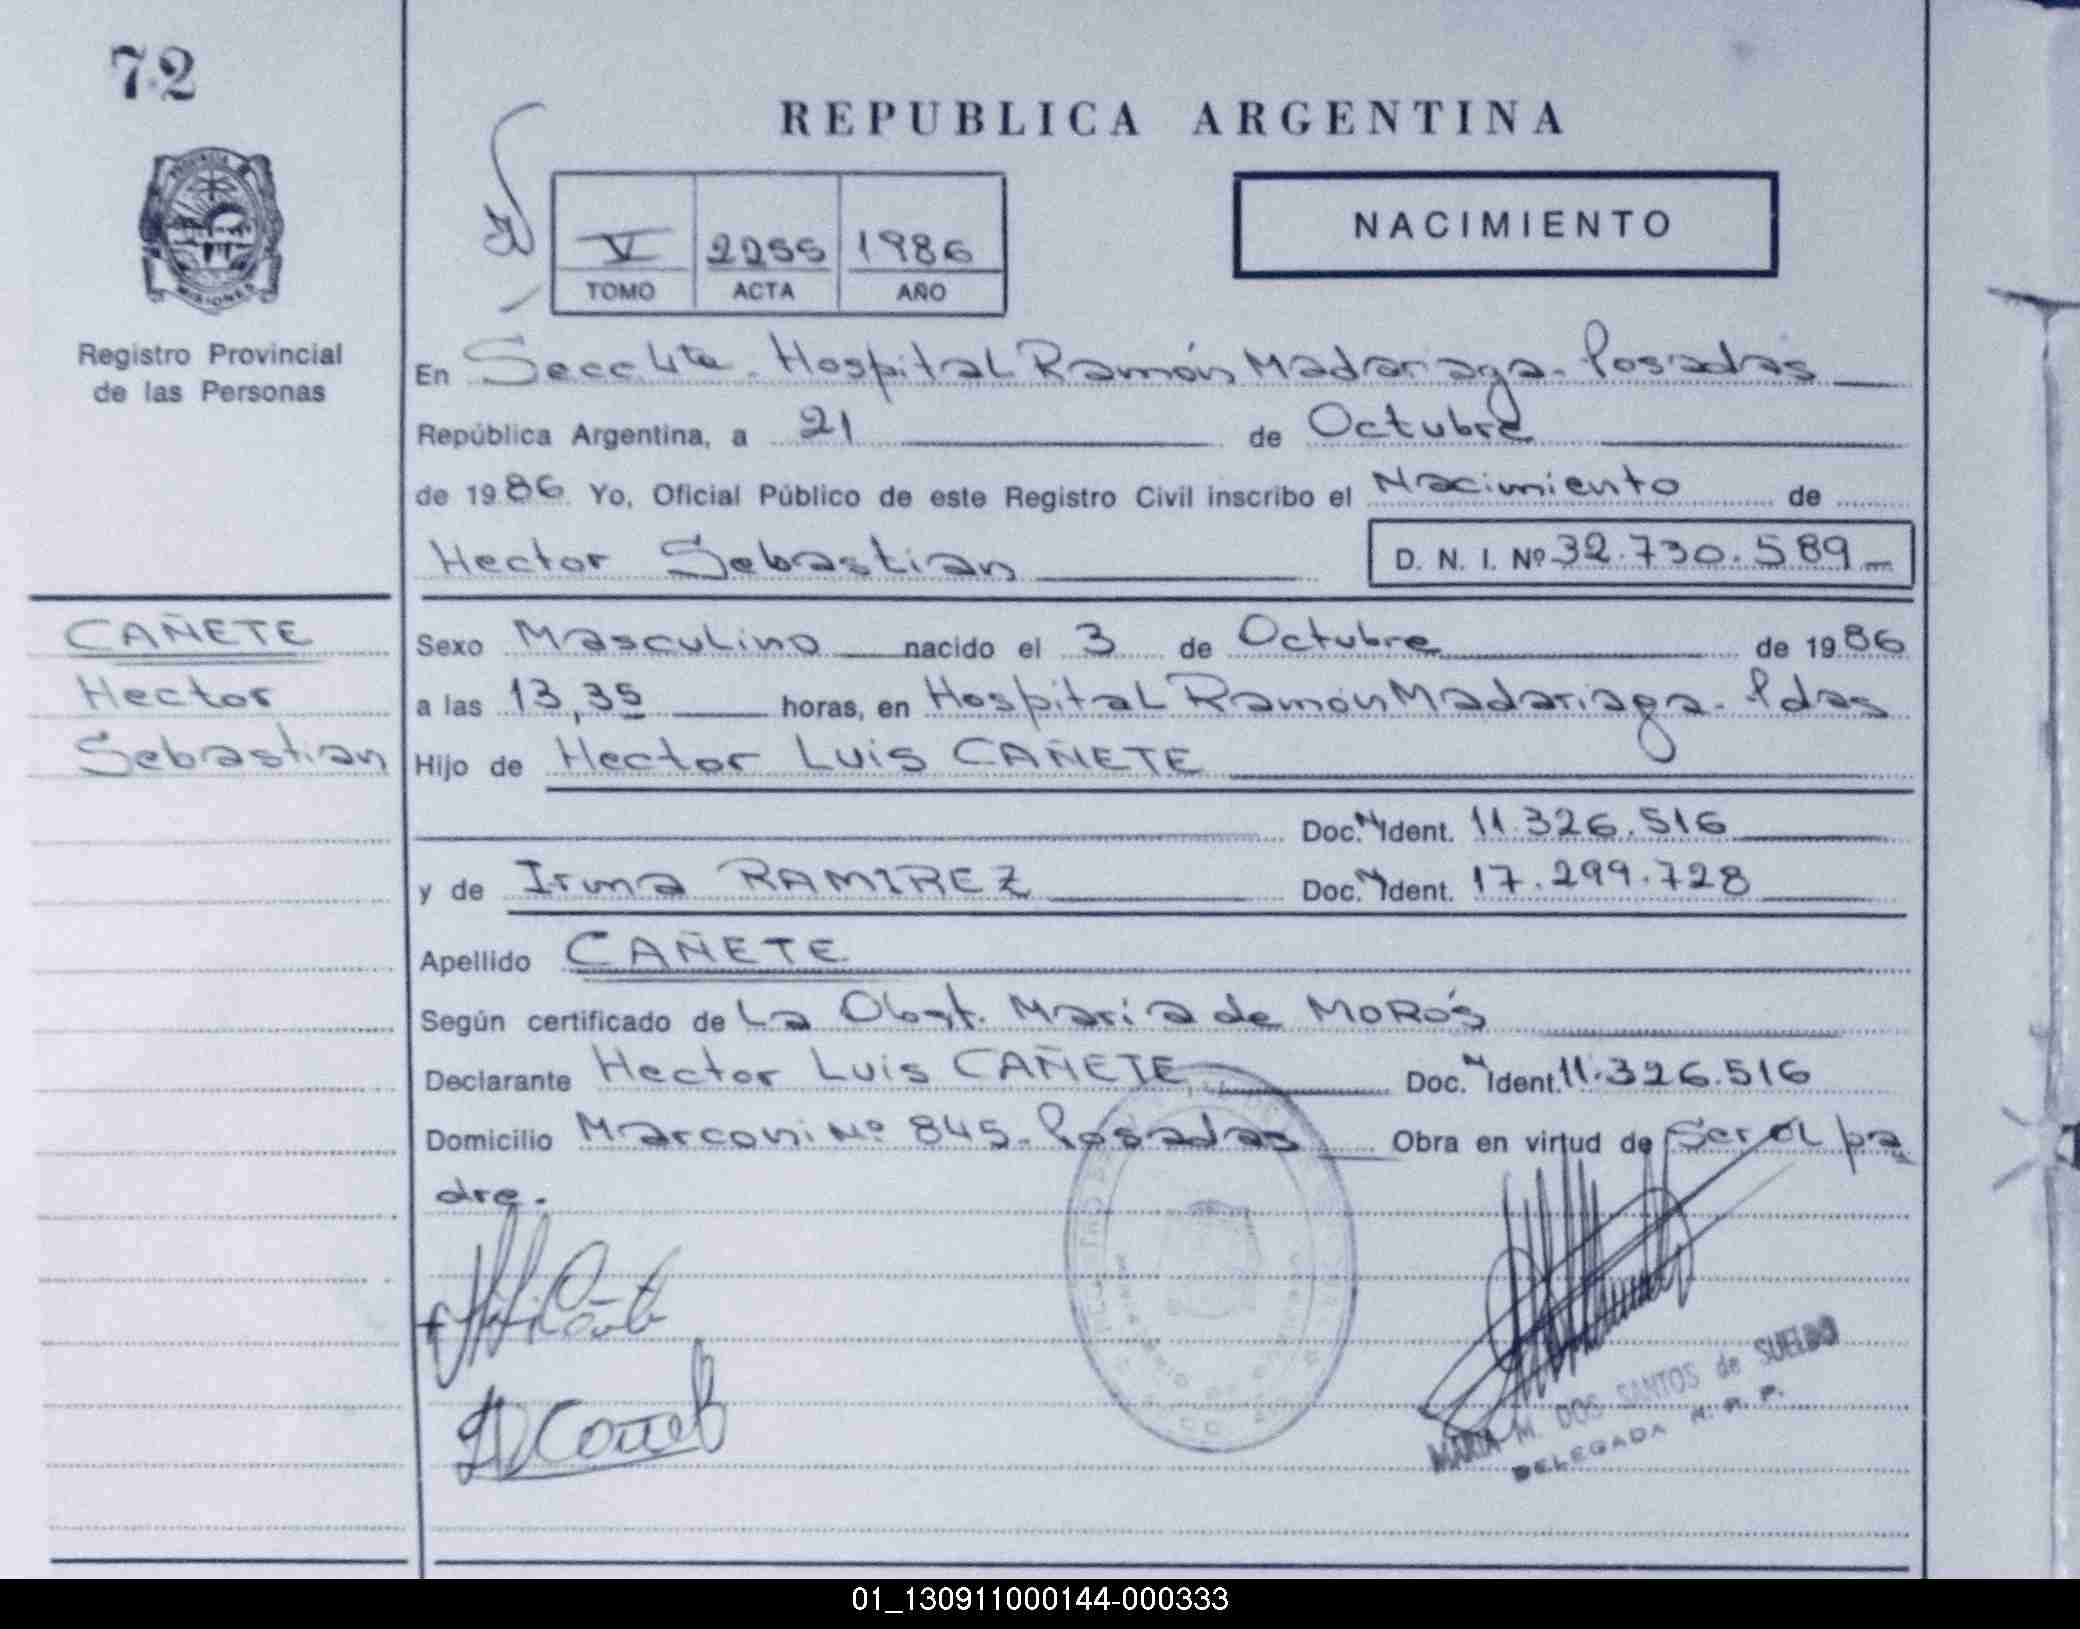 72
REPUBLICA ARGENTINA
NACIMIENTO
V 2255 1986
TOMO ACTA AÑO
PROVINCIA DE
MISIONES
Registro Provincial
de las Personas
En Secc 4ta. Hospital Ramón Madariaga. Posadas
República Argentina, a 21 de Octubre
de 1986 Yo, Oficial Público de este Registro Civil inscribo el Nacimiento de
Hector Sebastian D. N. I. Nº 32.730.589
CAÑETE
Hector
Sebastian
Sexo Masculino nacido el 3 de Octubre de 1986
a las 13,35 horas, en Hospital Ramón Madariaga. Pdas
Hijo de Hector Luis CAÑETE
Doc. N Ident. 11.326.516
y de Irma RAMIREZ Doc. N Ident. 17.299.728
Apellido CAÑETE
Según certificado de La Obst. María de MORÓS
Declarante Hector Luis CAÑETE Doc. N Ident. 11.326.516
Domicilio Marconi Nº 845. Posadas Obra en virtud de Ser el pa
dre.
MARIA M. DOS SANTOS de SUELDO
DELEGADA R. P. P.
01_130911000144-000333